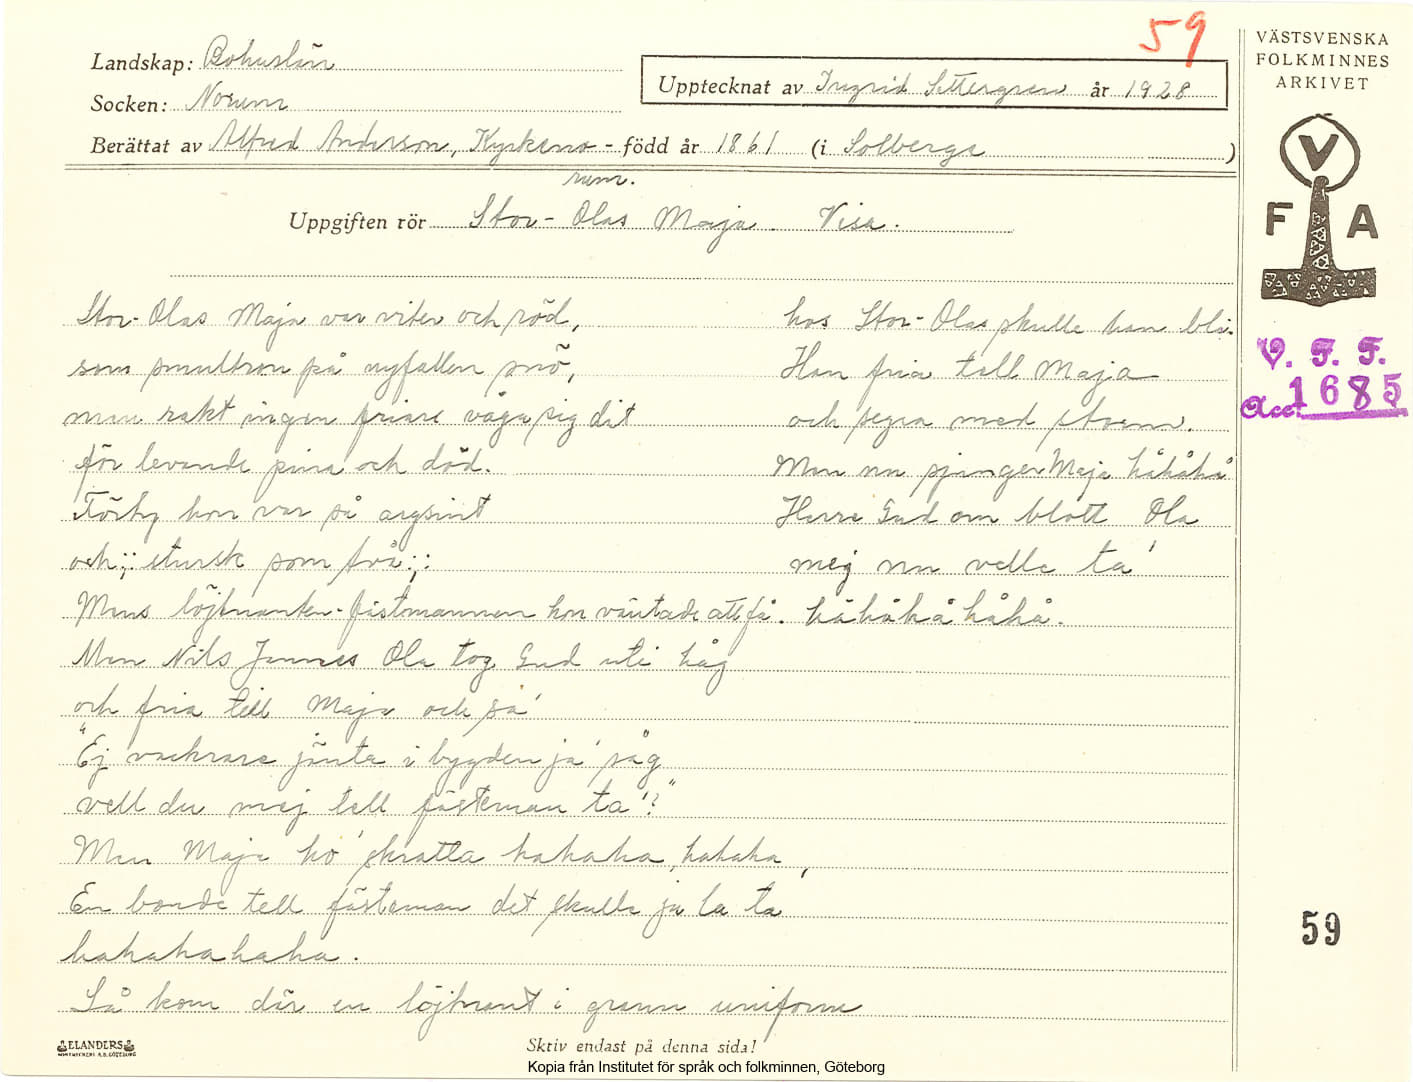 59
Landskap: Bohuslän
Socken: Norum
Berättat av Alfred Anderson, Kyrkeno-
rum.
född år 1861 (i Solberga )
Upptecknat av Ingrid Settergren år 1928
Uppgiften rör Stor-Olas Maja. Visa.
Stor-Olas Maja var viter och röd,
som smultron på nyfallen snö,
men rakt ingen friare våga sig dit
för levande pina och död.
Förty hon var så argsint
och ;: stursk som två :;:
Mens löjtnanten-fästmannen hon väntade att få.
Men Nils Jennses Ola tog Gud uti håg
och fria till Maja och sa'
"Ej vackrare jänta i bygden ja' såg
vell du mej tell fästeman ta'?"
Men Maja ho' skratta hahaha, hahaha,
En bonde tell fästeman det skulle ja la ta
hahahahaha.
Så kom där en löjtnant i grann uniform
hos Stor-Olas skulle han bli.
Han fria tell Maja
och segra med storm.
Men nu sjunger Maja håhåhå
Herre Gud om blott Ola
mej nu velle ta'
håhåhåhåhå.
VÄSTSVENSKA
FOLKMINNES
ARKIVET
V
F A
V. F. F.
Acc. 1685
59
ELANDERS
Skriv endast på denna sida!
Kopia från Institutet för språk och folkminnen, Göteborg